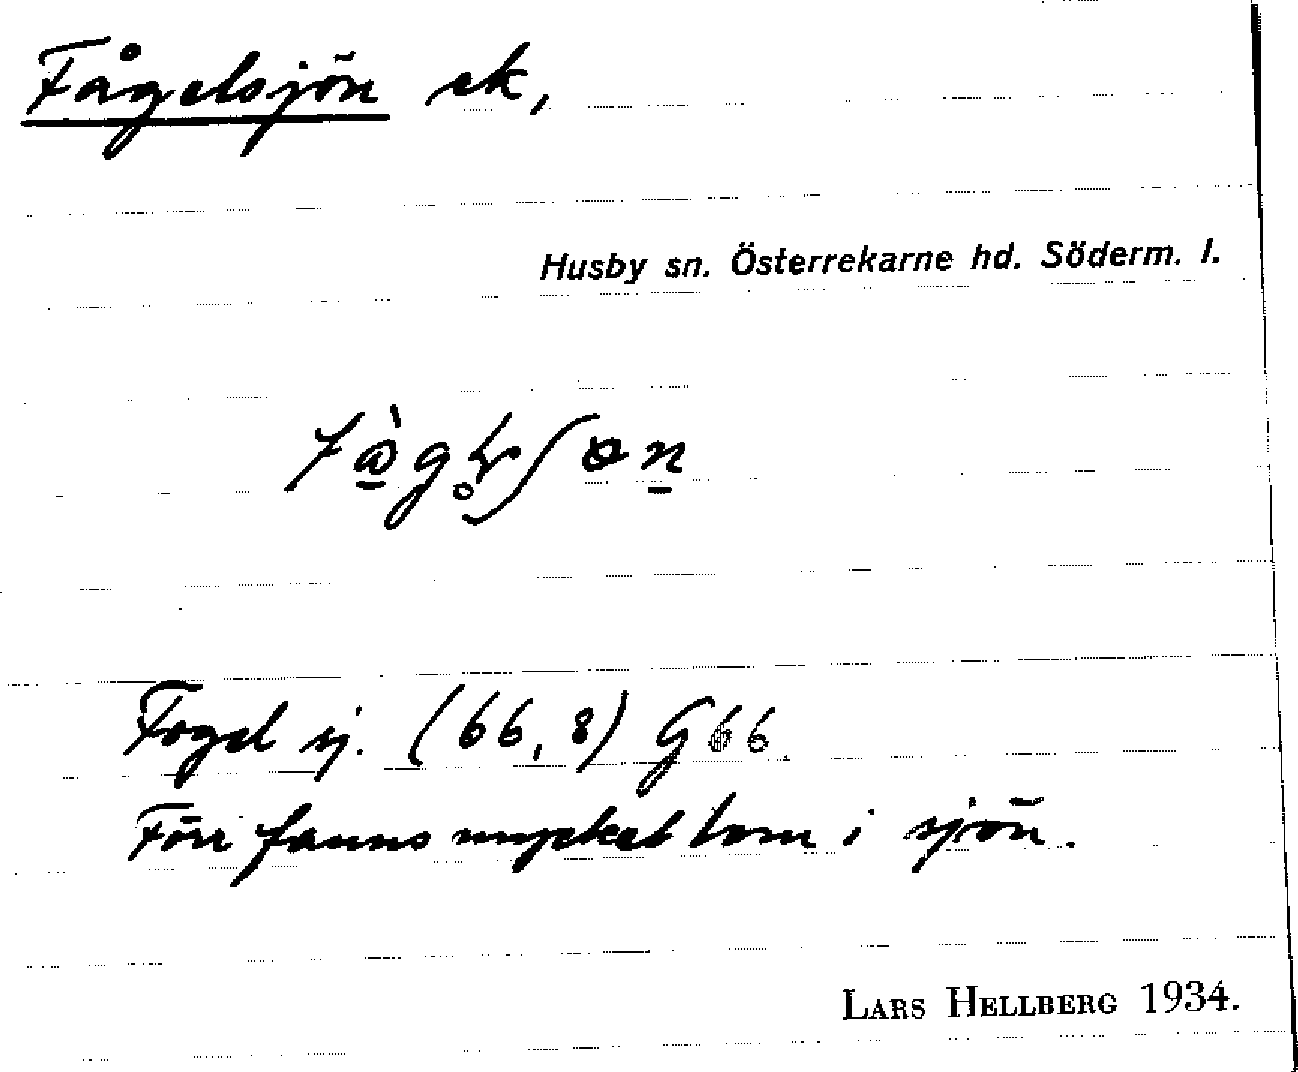 Fågelsjön ek,
Husby sn. Österrekarne hd. Söderm. l.
Fogel sj. (66, 8) G 66
Förr fanns mycket lom i sjön.
LARS HELLBERG 1934.